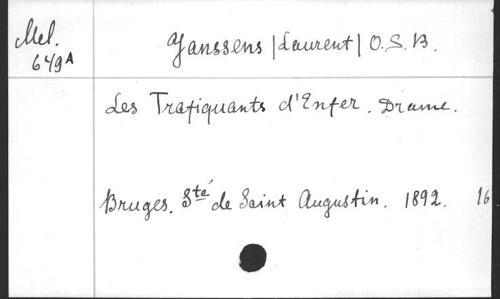 Mel.
649A
Janssens |Laurent| O.S.B.
Les Trafiquants d'Enfer. Drame.
Bruges. Sté de Saint Augustin. 1892. 16